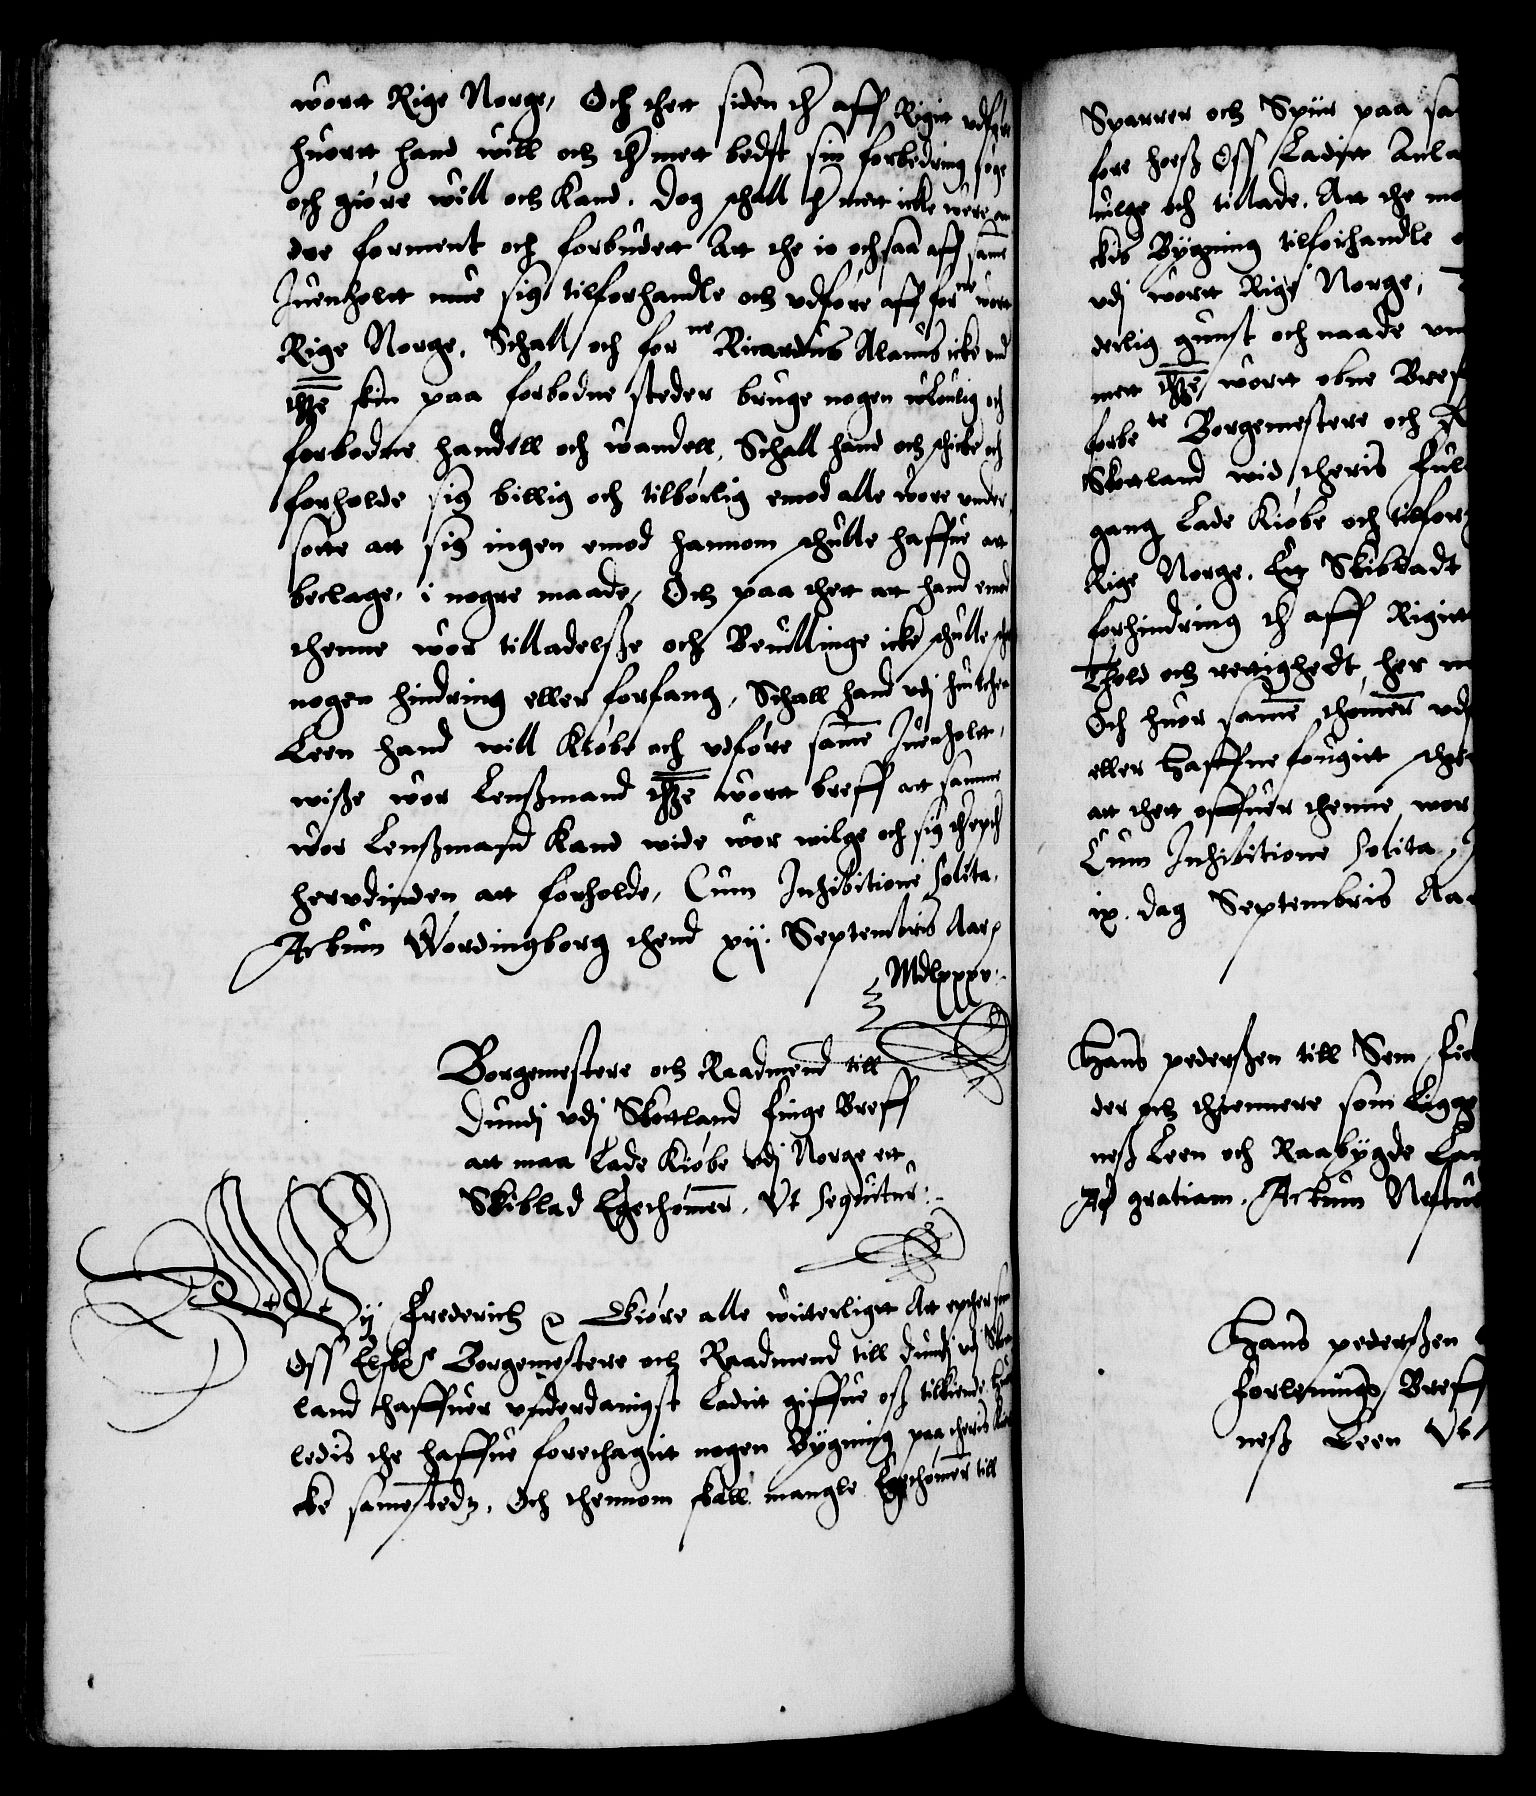 wortt Rige Norge, Och thett siden ther aff Rigitt udføre
huortt hand will och ther mett bedst sin forbedring søge
och giøre will och kand. Dog schall ther mett icke were an
dre forment och forbudett Att the io ochsaa aff same
Juenholtt mue sig tilforhandle och udføre aff forne wortt
Rige Norge. Schall och forne Ricardus Alanus icke und
thette skin paa forbodne steder bruge nogen uloulig och
forbodne handell och wandell, Schall hand och schicke och
forholde sig billig och tilbørlig emod alle wore under
sotte att sig ingen emod hannom schulle haffue att
beclage, i nogre maade, Och paa thett att hand emod
thenne wor tilladelsße och Beuillinge icke schulle
nogen hindring eller forfang, Schall hand udj huilcken
Leen hand will Kiøbe och udføre same Juenholtt,
wiße wor Lenßmand thette wortt breff att samme
wor Lenßmand Kand wide wor wilge och sig
herudinden att forholde, Cum Inhibitione Solita.
Actum Wordingborg thend xij. Septembris Aar
Mdlxxxv.
Borgemestere och Raadmend till
Dundj udj Skottland finge Breff
att maa Lade Kiøbe udj Norge ett
Skiblad Egethømer. Ut Sequitur.
Wij Frederich Giøre alle witterligtt Att epther som
Oss Elskelige Borgemestere och Raadmend till Dundj udj Skott
land haffuer underdanigst Laditt giffue oß tilkiende Huor
ledis the haffue foretagitt nogen Bygning paa theris Kir
cke samestedz, Och thennom skall mangle Egethømer till
Sparrer och Spiir paa sa
fore hoeß Oss Laditt Anla
uilge och tillade. Att the m
ckis Bygning tilforhandle
udj wortt Rige Norge,
derlig gunst och naade un
mett thette wortt obne Breff
forbete Borgemestere och
Skotland wid theris Ful
gang Lade Kiøbe och tilfor
Rige Norge. Ett Skibladt
forhindring ther aff Rigitt
Thold och rettighedt, her
Och huor same thømer ud
eller Haffne fougitt the
att thett offuer thenne wor
Cum Inhibitione Solita.
ix. dag Septembris Aar
Hans pederßen till Sem Fi
der och thiennere som Ligge
neß Leen och Raabygde La
Ad gratiam. Actum Nestue
Hans pederßen
Forlenings Breff
neß Leen Ut